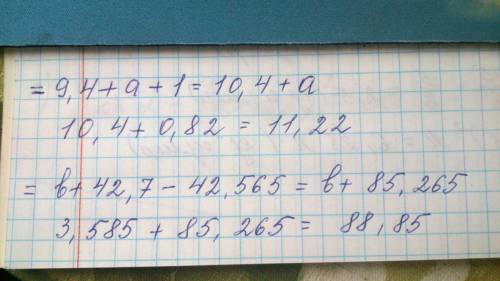 = 9,4 + a + 1 = 10,4 + a
10,4 + 0,82 = 11,22
= b + 42,7 - 42,565 = b + 85,265
3,585 + 85,265 = 88,85